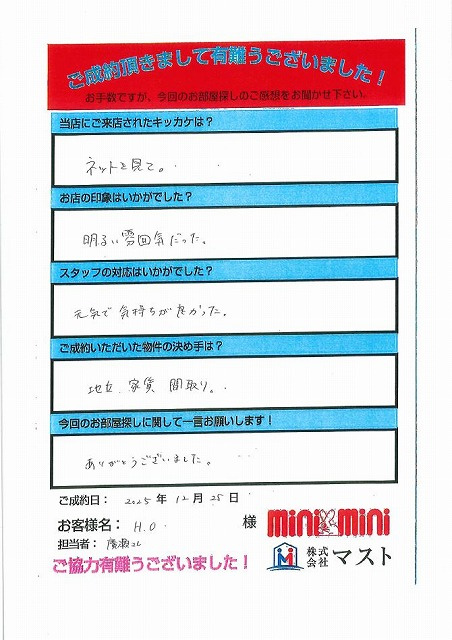 ご成約頂きまして有難うございました！
お手数ですが、今回のお部屋探しのご感想をお聞かせ下さい。
当店にご来店されたキッカケは？
ネットを見て。
お店の印象はいかがでした？
明るい雰囲気だった。
スタッフの対応はいかがでした？
元気で気持ちが良かった。
ご成約いただいた物件の決め手は？
地立 家賃 間取り。
今回のお部屋探しに関して一言お願いします！
ありがとうございました。
ご成約日： 2025 年 12 月 25 日
お客様名： H.O 様
担当者：
mini mini
株式会社 マスト
ご協力有難うございました！